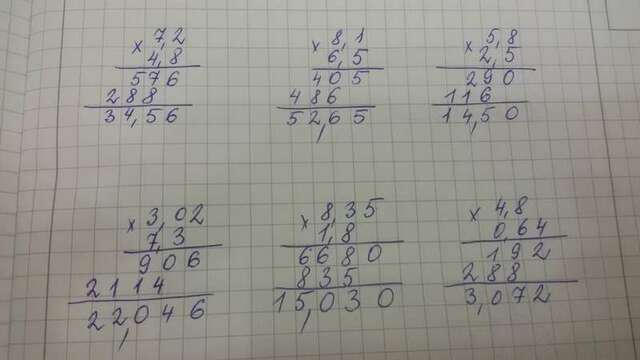 × 7,2
4,8
576
288
34,56
× 8,1
6,5
405
486
52,65
× 5,8
2,5
290
116
14,50
× 3,02
7,3
906
2114
22,046
× 8,35
1,8
6680
835
15,030
× 4,8
0,64
192
288
3,072